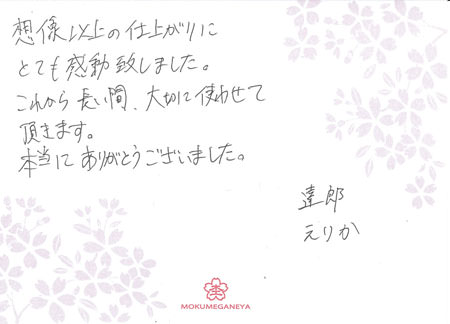 想像以上の仕上がりに
とても感動致しました。
これから長い間、大切に使わせて
頂きます。
本当にありがとうございました。
達郎
えりか
MOKUMEGANEYA